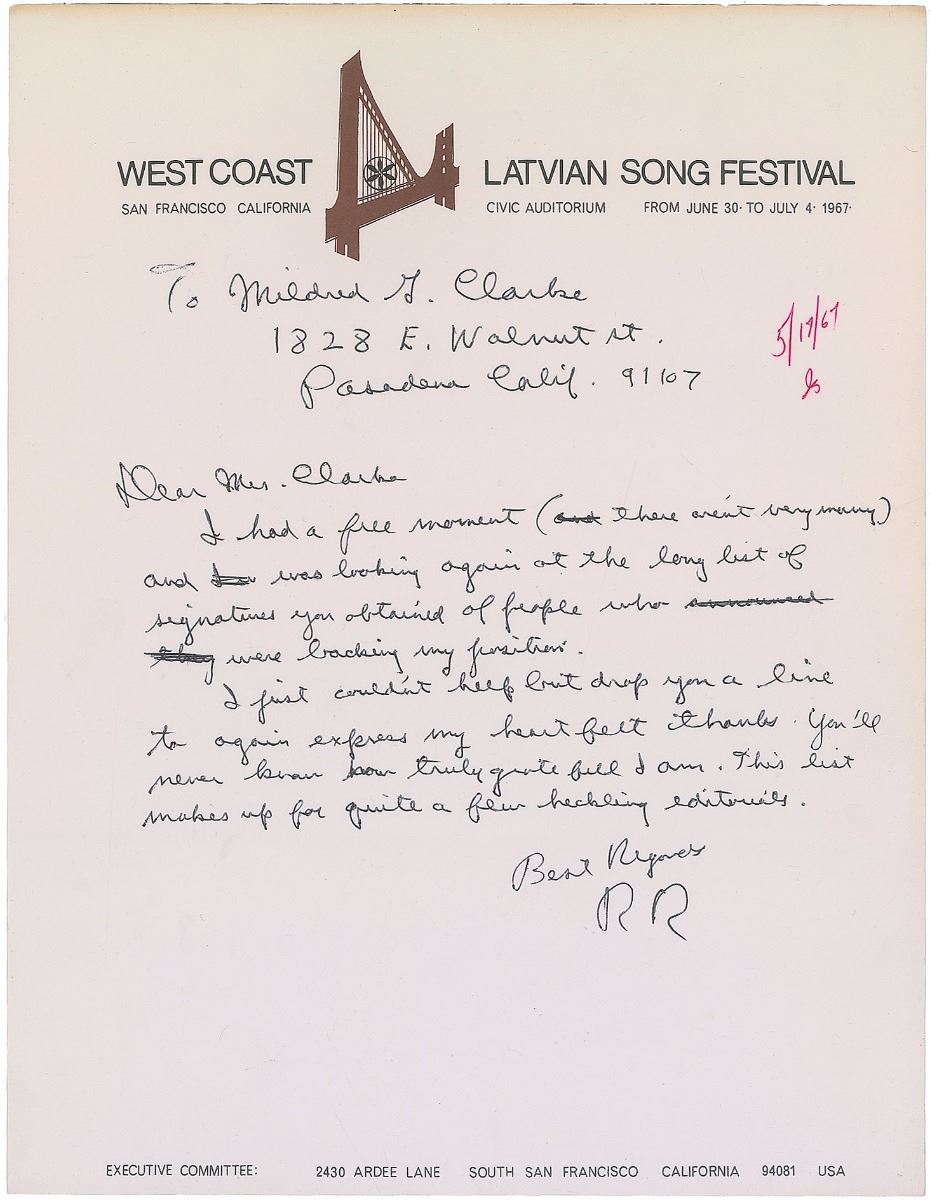 WEST COAST LATVIAN SONG FESTIVAL
SAN FRANCISCO CALIFORNIA CIVIC AUDITORIUM FROM JUNE 30· TO JULY 4· 1967·
To Mildred G. Clarke
1828 E. Walnut st.
Pasadena Calif. 91107
5/17/67
Dear Mrs. Clarke
I had a free moment (and there aren't very many)
and was looking again at the long list of
signatures you obtained of people who announced
they were backing my position.
I just couldn't help but drop you a line
to again express my heart felt thanks. You'll
never know how truly grate full I am. This list
makes up for quite a few heckling editorials.
Best Regards
RR
EXECUTIVE COMMITTEE: 2430 ARDEE LANE SOUTH SAN FRANCISCO CALIFORNIA 94081 USA